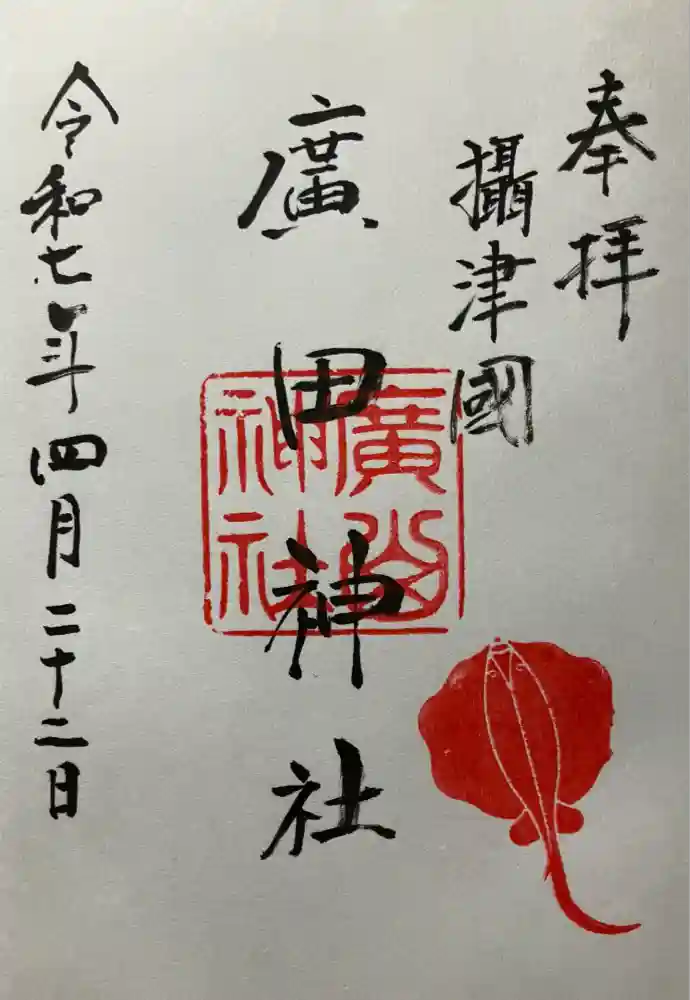 奉拝
攝津國
廣田神社
廣田
神社
令和七年四月二十二日